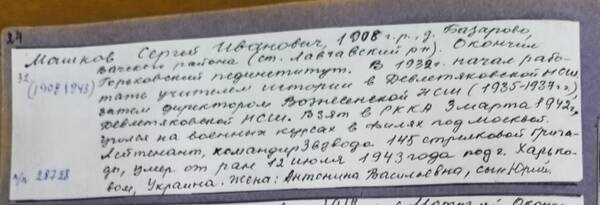 24
Машков Сергей Иванович, 1908 г.р., д. Базарово,
Вачского района (ст. Лавчавский р-н). Окончил
32 Горьковский пединститут. В 1932г. начал рабо-
(1908 1943) тать учителем истории в Девлетяковской НСШ,
затем директором Вознесенской НСШ (1935-1937 гг.)
Девлетяковской НСШ. Взят в РККА 3 марта 1942г,
учился на военных курсах в Филях под Москвой.
Лейтенант, командир 3 взвода 145 стрелковой
п/п 28728 умер от ран 12 июля 1943 года под г. Харько-
вом, Украина. Жена: Антонина Васильевна, сын Юрий.